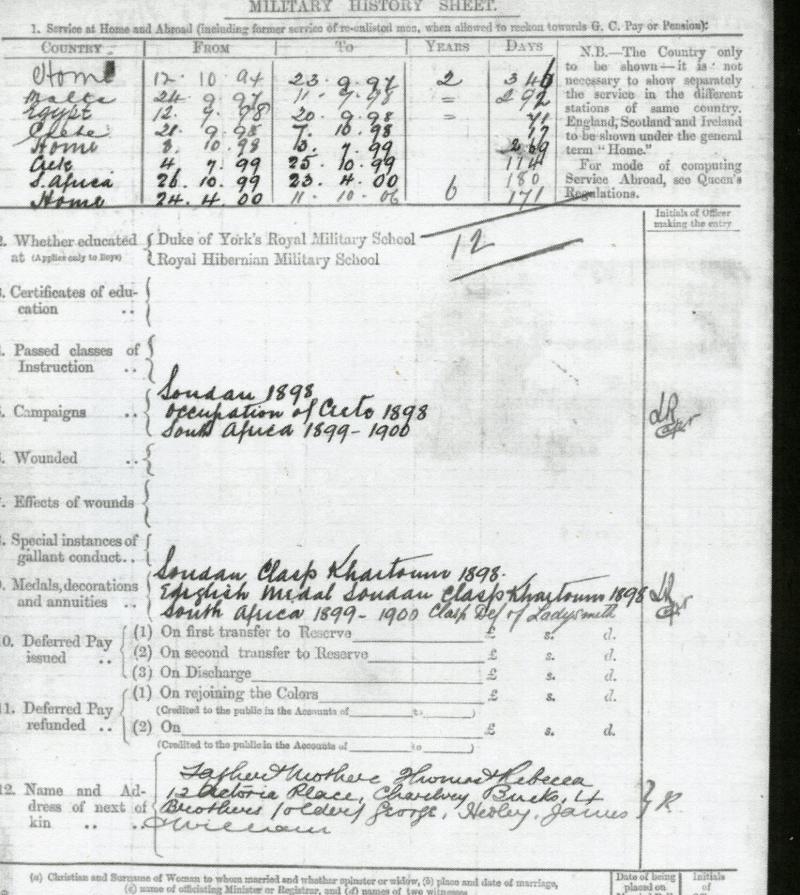 MILITARY HISTORY SHEET.
1. Service at Home and Abroad (including former service of re-enlisted men, when allowed to reckon towards G. C. Pay or Pension):
COUNTRY FROM TO YEARS DAYS
Home 12 . 10 . 94 23 . 9 . 97 2
Malta 24 9 97 11 9 98 = 292
Egypt 12 . 9 . 98 20 . 9 . 98 =
Crete 21 . 9 . 98 7 . 10 . 98 17
Home 8 . 10 . 98 3 . 7 . 99
4 . 7 . 99 25 . 10 . 99 114
S. Africa 26 . 10 . 99 23 . 4 . 00 180
Home 24 . 4 . 00 11 . 10 . 06 6 171
N.B.—The Country only
to be shown—it is not
necessary to show separately
the service in the different
stations of same country.
England, Scotland and Ireland
to be shown under the general
term "Home."
For mode of computing
Service Abroad, see Queen's
Regulations.
Initials of Officer
making the entry
2. Whether educated at (Applies only to Boys)
Duke of York's Royal Military School
Royal Hibernian Military School
12
3. Certificates of edu-
cation ..
4. Passed classes of
Instruction ..
5. Campaigns ..
Soudan 1898
Occupation of Crete 1898
South Africa 1899-1900
6. Wounded ..
7. Effects of wounds
8. Special instances of
gallant conduct..
9. Medals, decorations
and annuities ..
Soudan Clasp Khartoum 1898.
English Medal Soudan Clasp Khartoum 1898
South Africa 1899-1900 Clasp Def of Ladysmith
10. Deferred Pay
issued ..
(1) On first transfer to Reserve £ s. d.
(2) On second transfer to Reserve £ s. d.
(3) On Discharge £ s. d.
11. Deferred Pay
refunded ..
(1) On rejoining the Colors £ s. d.
(Credited to the public in the Accounts of to )
(2) On £ s. d.
(Credited to the public in the Accounts of to )
12. Name and Ad-
dress of next of
kin .. ..
Father & Mother Thomas & Rebecca
12 Victoria Place, Bucks,
Brothers (older) George, Hedley, James
& William
(a) Christian and Surname of Woman to whom married and whether spinster or widow, (b) place and date of marriage,
(c) name of officiating Minister or Registrar, and (d) names of two witnesses
Date of being
placed on
Initials
of